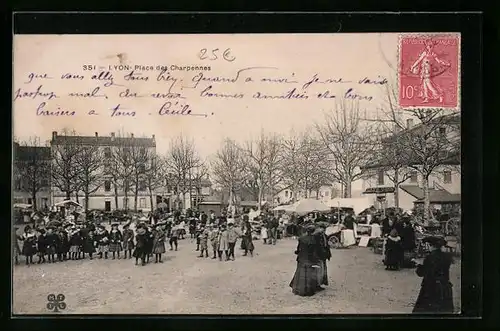 25€
351 - LYON - Place des Charpennes
que vous allez tous très, Quand a moi, je ne vais
pas trop mal, Au revoir bonnes amitiés et bons
baisers a tous. Cécile.
REPUBLIQUE FRANÇAISE
10c